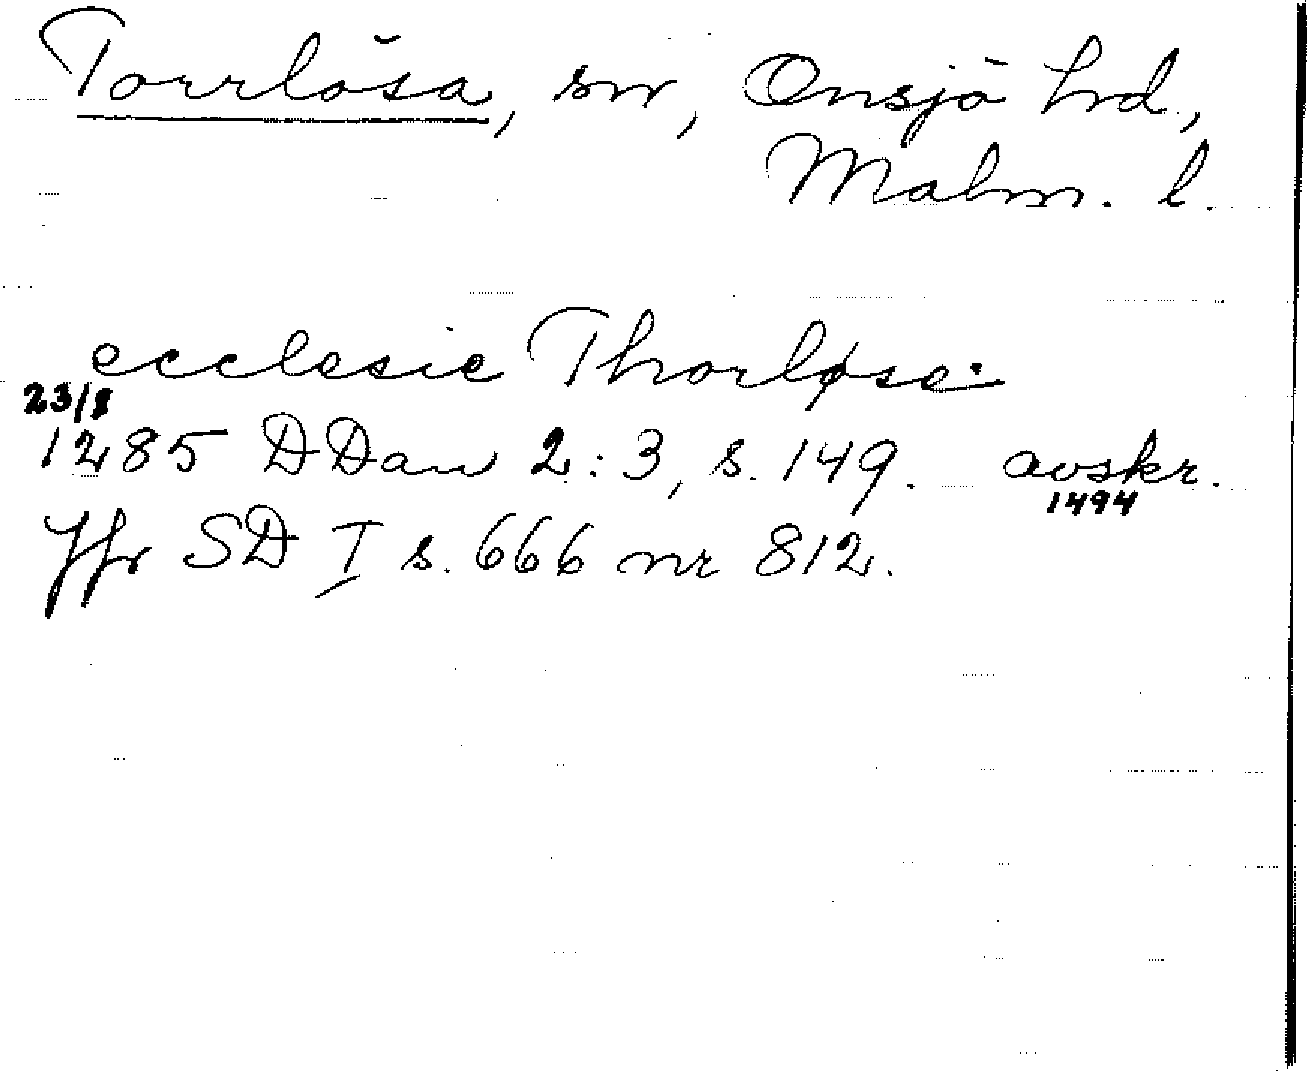 Torrlösa, sn, Onsjö hd,
Malm. l.
ecclesie Thorløse
23/1
1285 DDan 2:3, s. 149. avskr.
1494
Jfr SD I s. 666 nr 812.